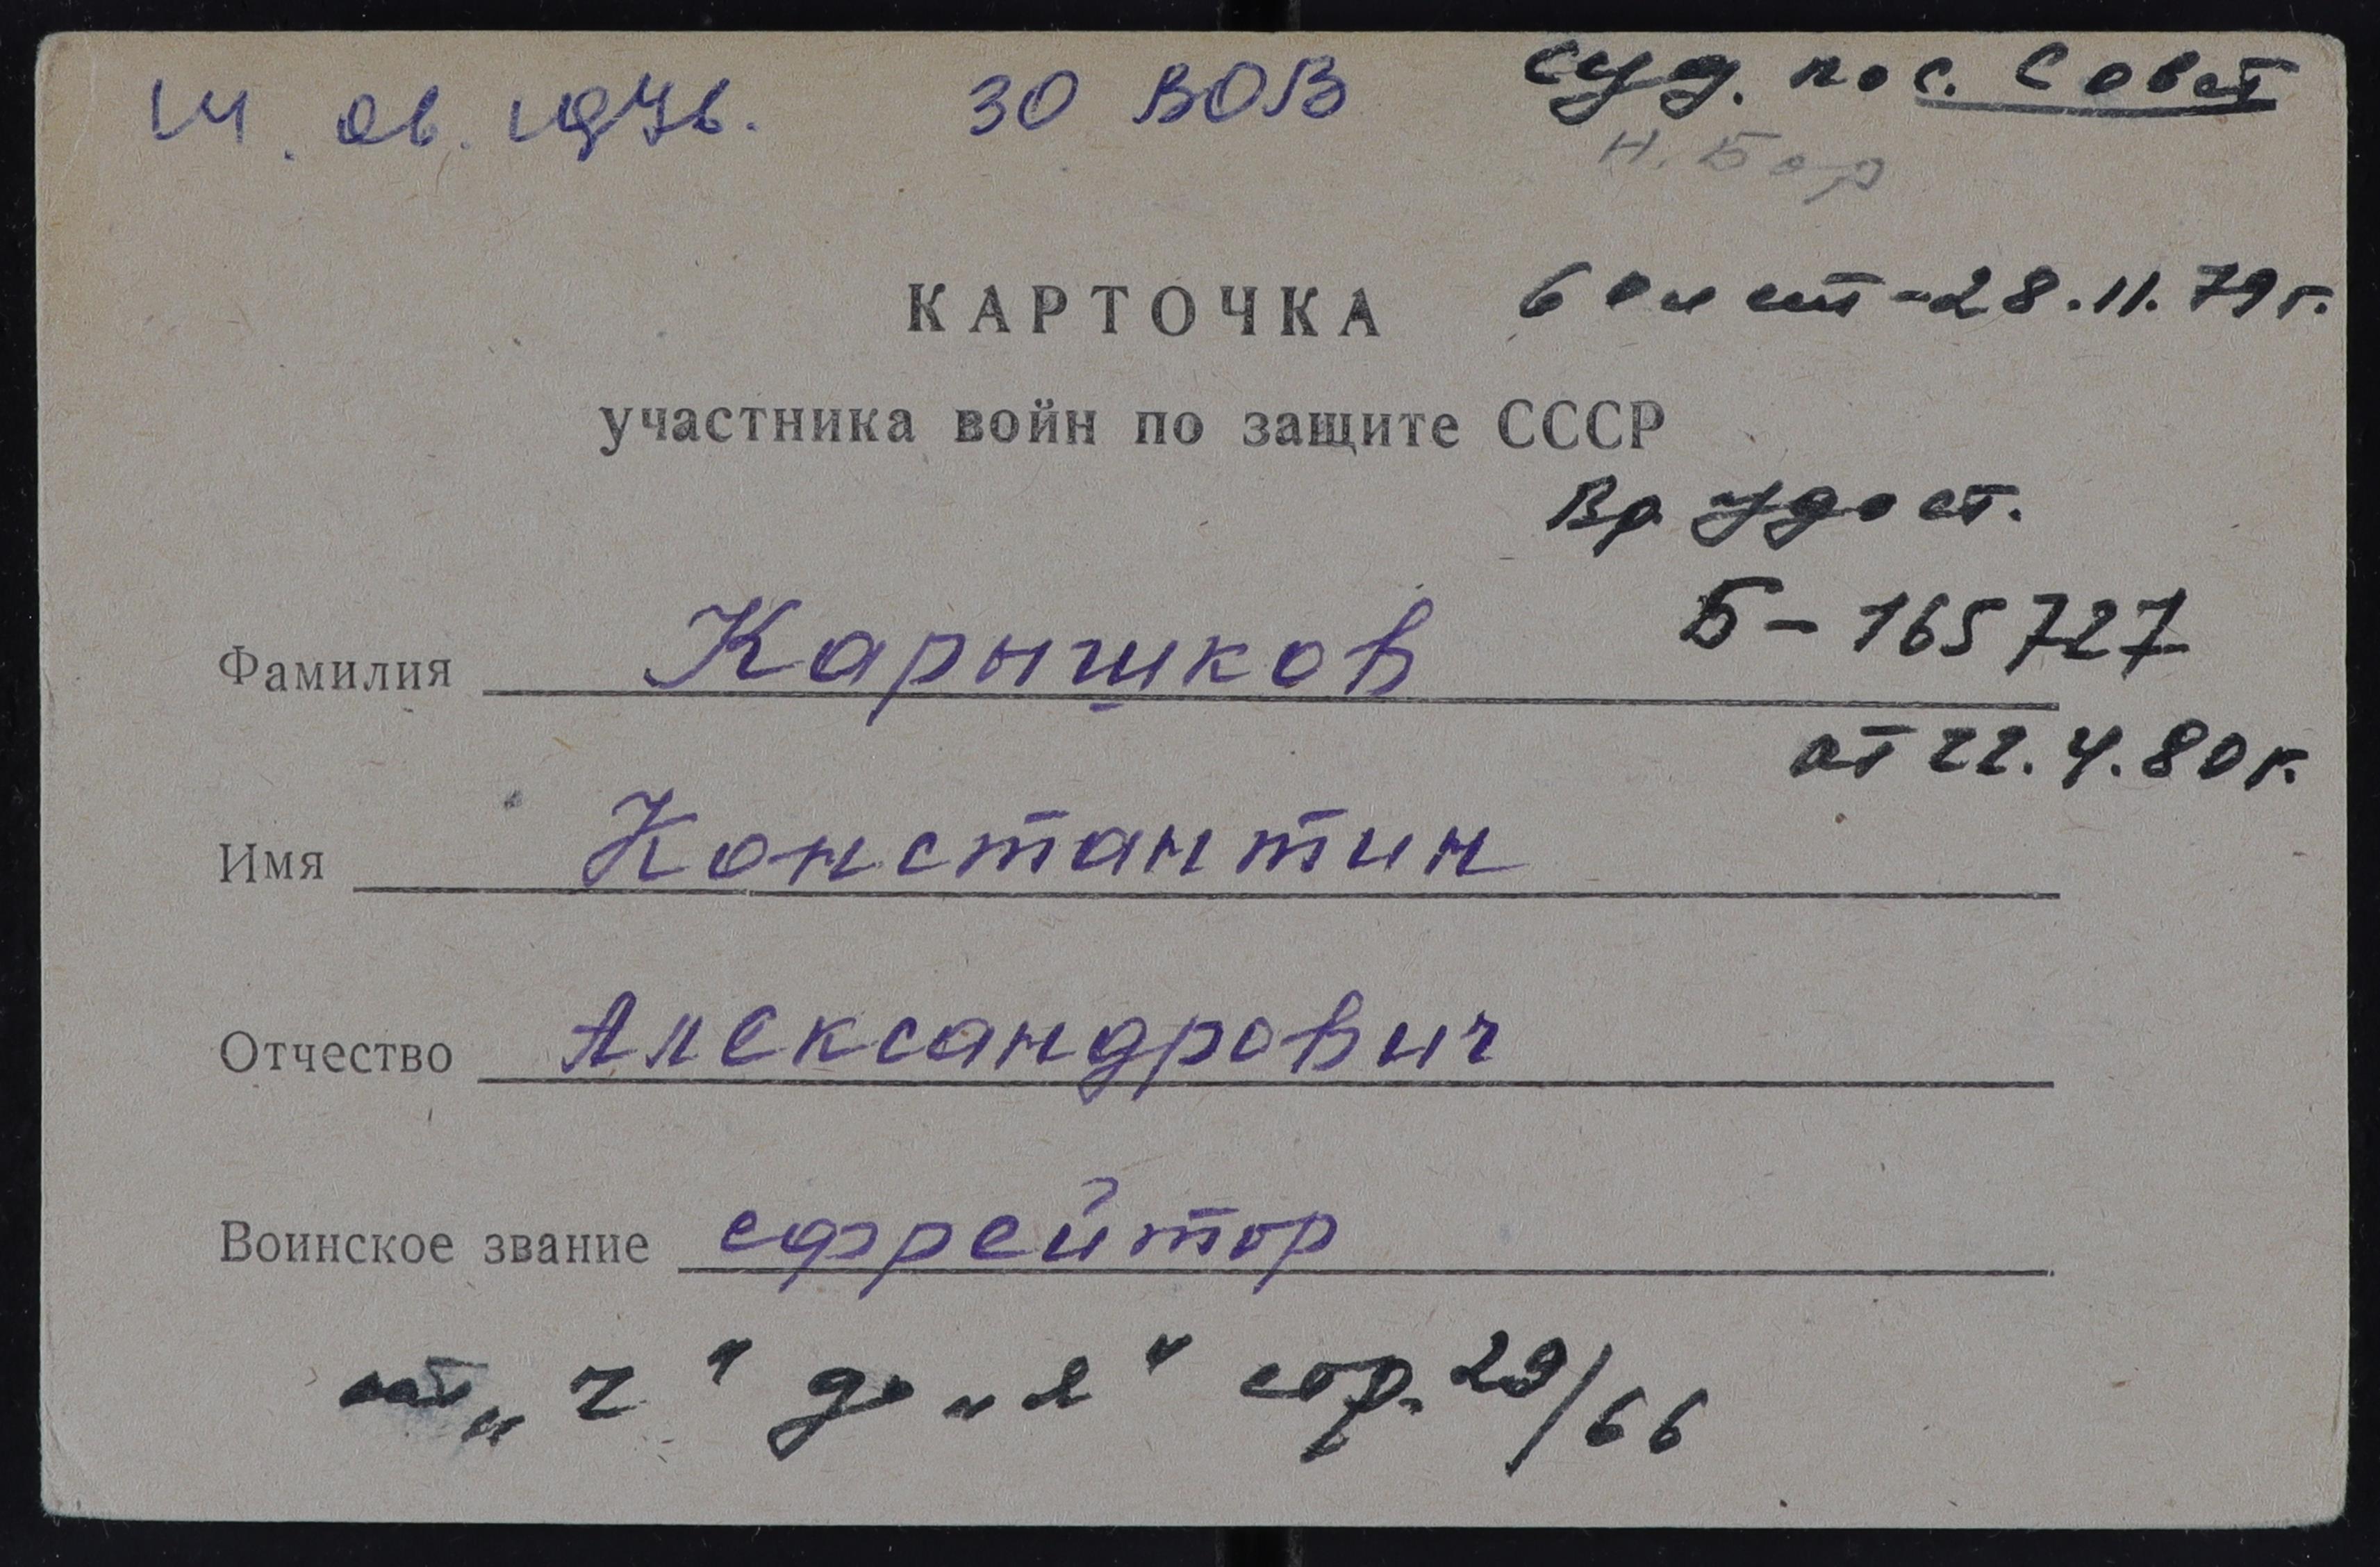 14. 06. 1976. 30 ВОВ суд. пос. Совет
Н. Бор
КАРТОЧКА
60 лет - 28.11.79 г.
участника войн по защите СССР
Вр. удост.
Б - 165727
Фамилия Карышков
от 22.4.80 г.
Имя Константин
Отчество Александрович
Воинское звание ефрейтор
от „Ч" до „Я" стр. 29/66